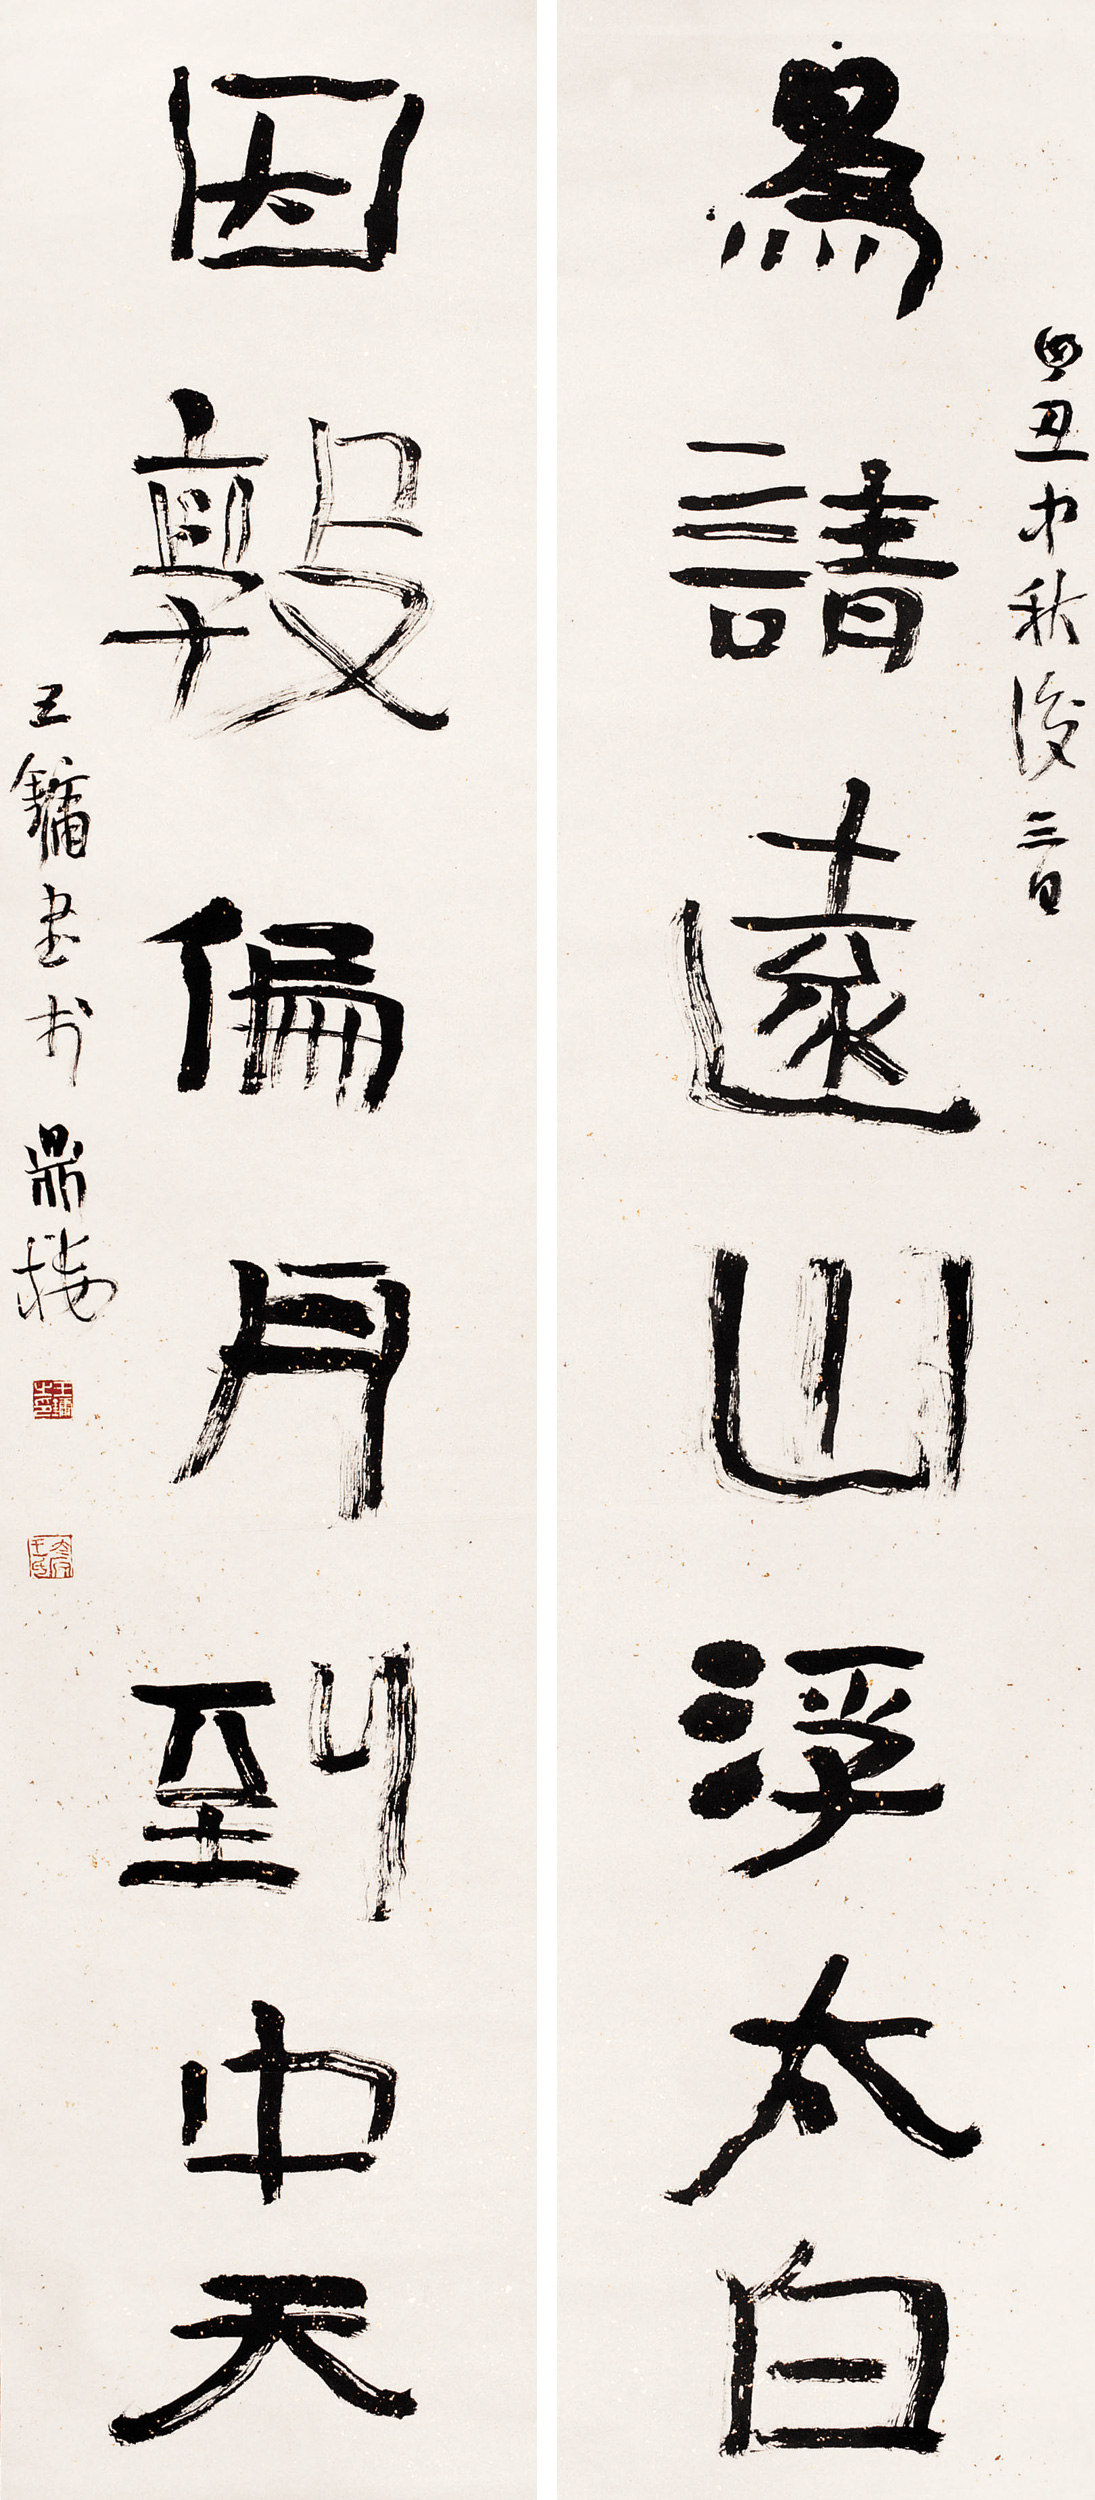 丑中秋後三日
為請遠山浮太白
因敦偏月到中天
王鏞書於鼎樓
王鏞之印